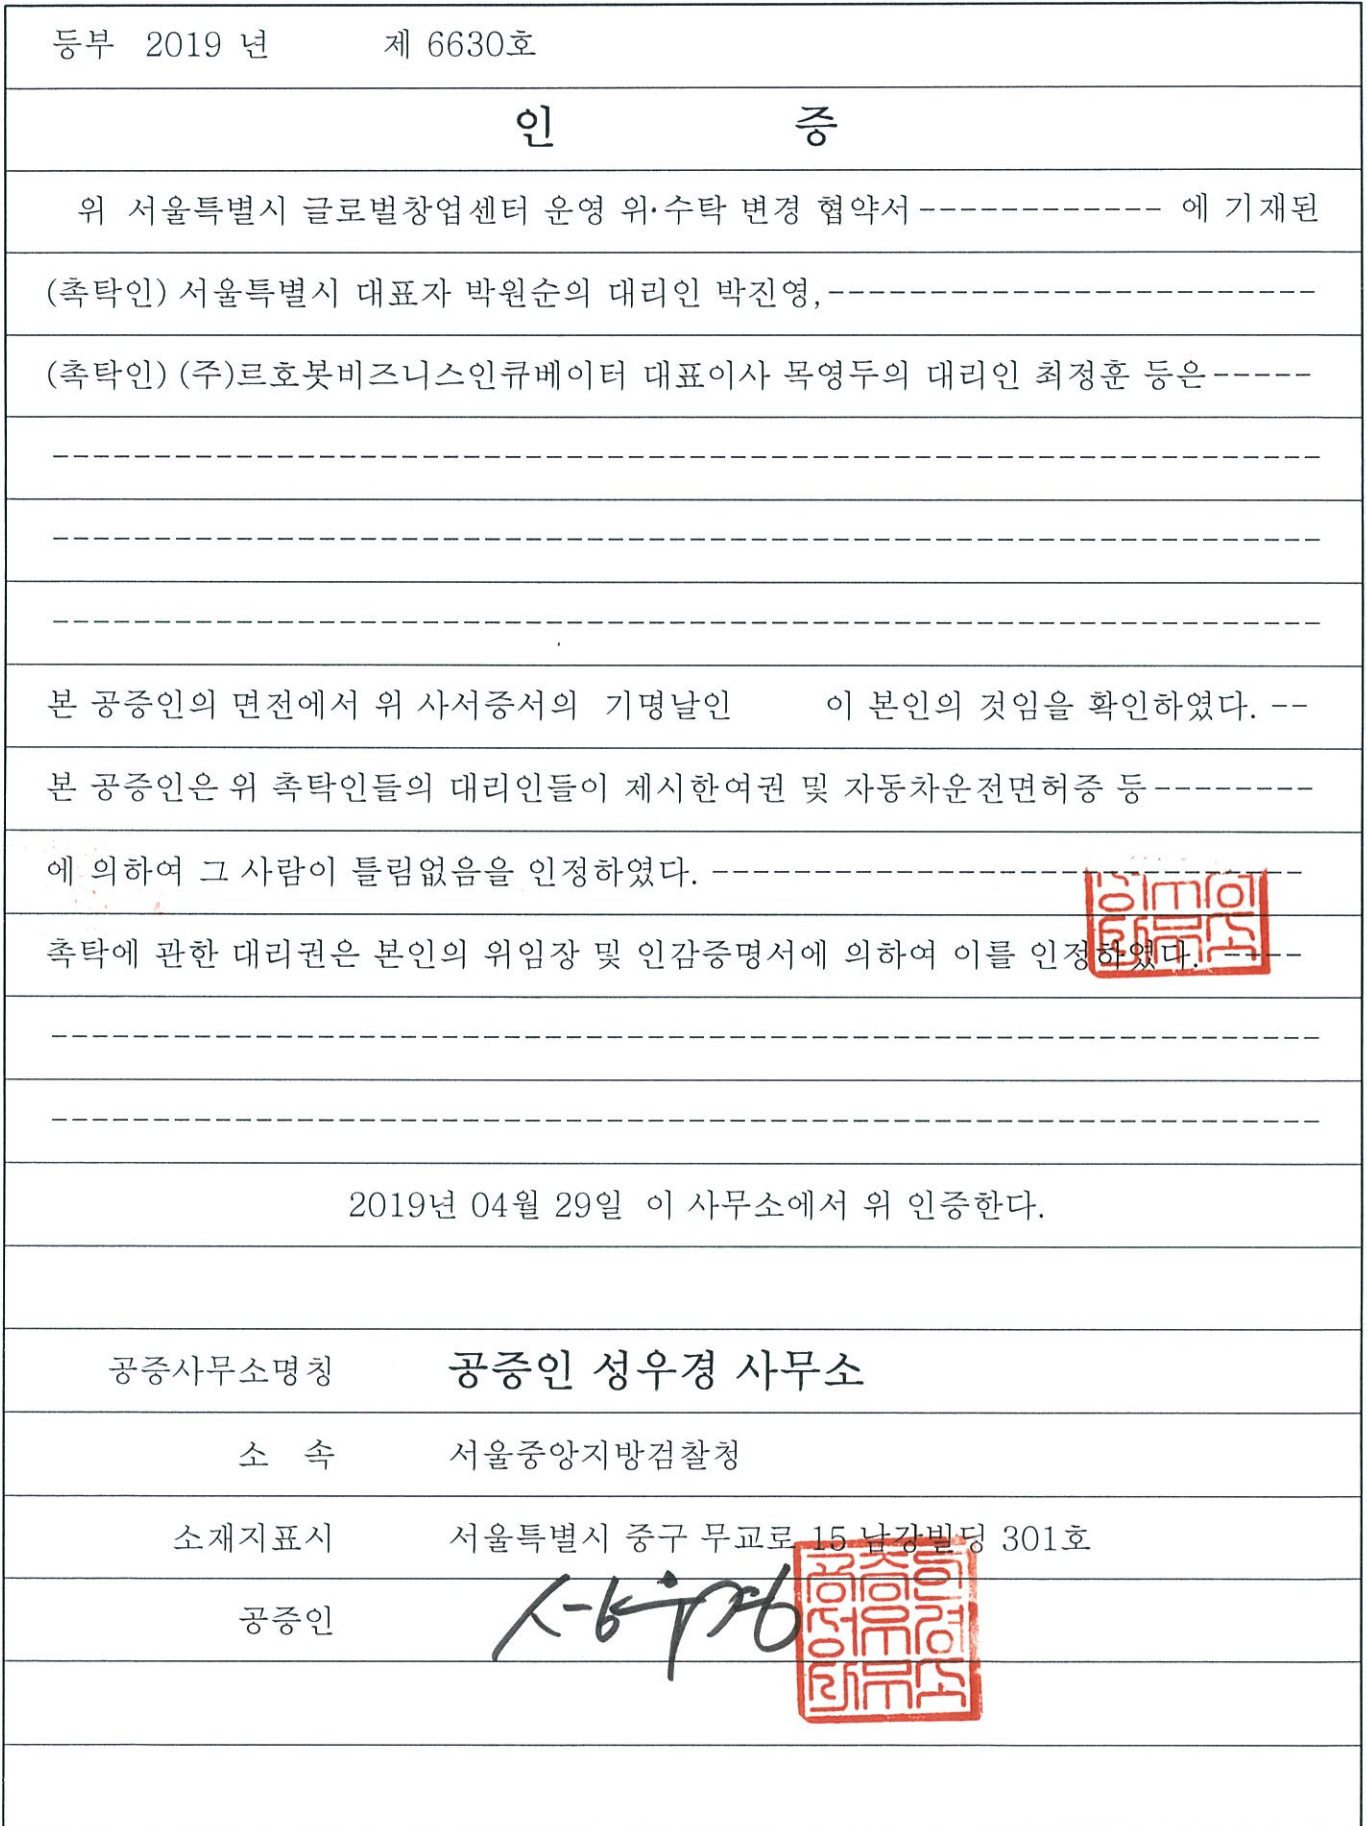 등부 2019 년 제 6630호
인 증
위 서울특별시 글로벌창업센터 운영 위·수탁 변경 협약서------------ 에 기재된
(촉탁인) 서울특별시 대표자 박원순의 대리인 박진영,------------------------
(촉탁인) (주)르호봇비즈니스인큐베이터 대표이사 목영두의 대리인 최정훈 등은-----
본 공증인의 면전에서 위 사서증서의 기명날인 이 본인의 것임을 확인하였다. --
본 공증인은 위 촉탁인들의 대리인들이 제시한여권 및 자동차운전면허증 등--------
에 의하여 그 사람이 틀림없음을 인정하였다. -----------------------------
촉탁에 관한 대리권은 본인의 위임장 및 인감증명서에 의하여 이를 인정하였다. ----
2019년 04월 29일 이 사무소에서 위 인증한다.
공증사무소명칭 공증인 성우경 사무소
소 속 서울중앙지방검찰청
소재지표시 서울특별시 중구 무교로 15 남강빌딩 301호
공증인